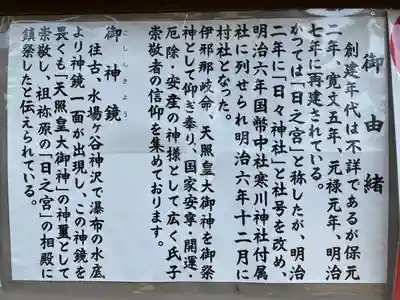 御由緒
創建年代は不詳であるが保元
二年、寛文五年、元禄元年、明治
七年に再建されている。
かつては「日之宮」と称したが、明治
二年に「日々神社」と社号を改め、
明治六年国幣中社寒川神社付属
社に列せられ明治六年十二月に
村社となった。
伊邪那岐命、天照皇大御神を御祭
神として仰ぎ奉り、国家安寧・開運・
厄除・安産の神様として広く氏子
崇敬者の信仰を集めております。
御神鏡
ごしんきょう
往古、水場ヶ谷神沢で瀑布の水底
より神鏡一面が出現し、この神鏡を
畏くも「天照皇大御神」の神璽として
崇敬し、祖祢原の「日之宮」の相殿に
鎮祭したと伝えられている。